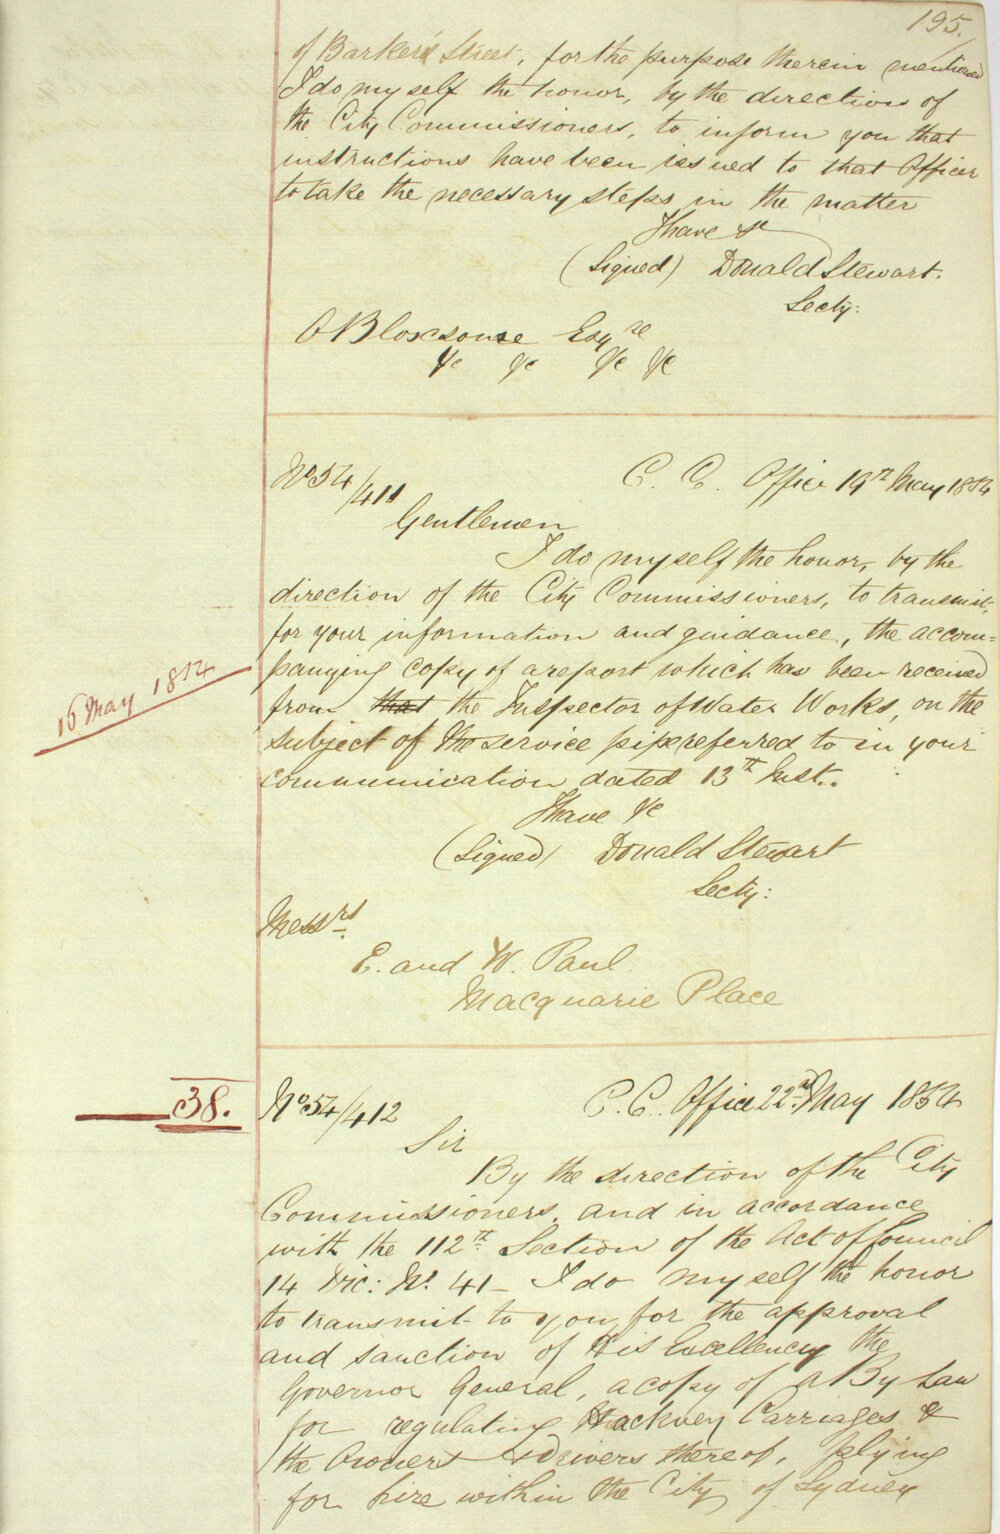 195.
of Barker's Street, for the purpose therein mentioned
I do myself the honor, by the direction of
the City Commissioners, to inform you that
instructions have been issued to that Officer
to take the necessary steps in the matter
I have &c
(Signed) Donald Stewart.
Secty:
O Bloxsome Esqre
&c &c &c &c
No 54/411
C. C. Office 19th May 1854
Gentlemen
I do myself the honor, by the
direction of the City Commissioners, to transmit,
for your information and guidance, the accom=
panying copy of a report which has been received
16 May 1854
from that the Inspector of Water Works, on the
subject of the service pipe referred to in your
communication dated 13th Inst..
I have &c
(Signed) Donald Stewart
Secty:
Messrs
E. and W. Paul
Macquarie Place
38.
No 54/412
C. C. Office 22nd May 1854
Sir
By the direction of the City
Commissioners, and in accordance
with the 112th Section of the Act of Council
14 Vic: No. 41 – I do myself the honor
to transmit to you, for the approval
and sanction of His Excellency the
Governor General, a copy of a By Law
for regulating Hackney Carriages &
the Owners & drivers thereof, plying
for hire within the City of Sydney